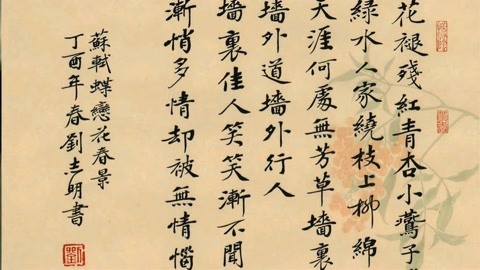 花褪殘紅青杏小鷰子
綠水人家繞枝上柳綿
天涯何處無芳草墻裏
墻外道墻外行人
墻裏佳人笑笑漸不聞
漸悄多情却被無情惱
蘇軾蝶戀花春景
丁酉年春劉志明書
劉